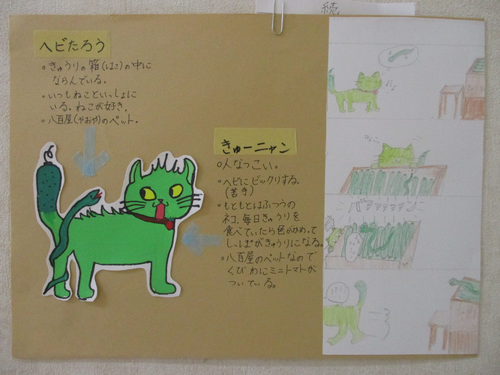 続
ヘビたろう
・きゅうりの箱(はこ)の中に
ならんでいる。
・いつもねこといっしょに
いる。ねこが好き。
・八百屋(やおや)のペット。
きゅーニャン
・人なつこい。
・ヘビにビックリする。
(苦手)
・もともとはふつうの
ネコ。毎日きゅうりを
食べていたら色がかわって
しっぽがきゅうりになる。
・八百屋のペットなので
くびわにミニトマトが
ついている。